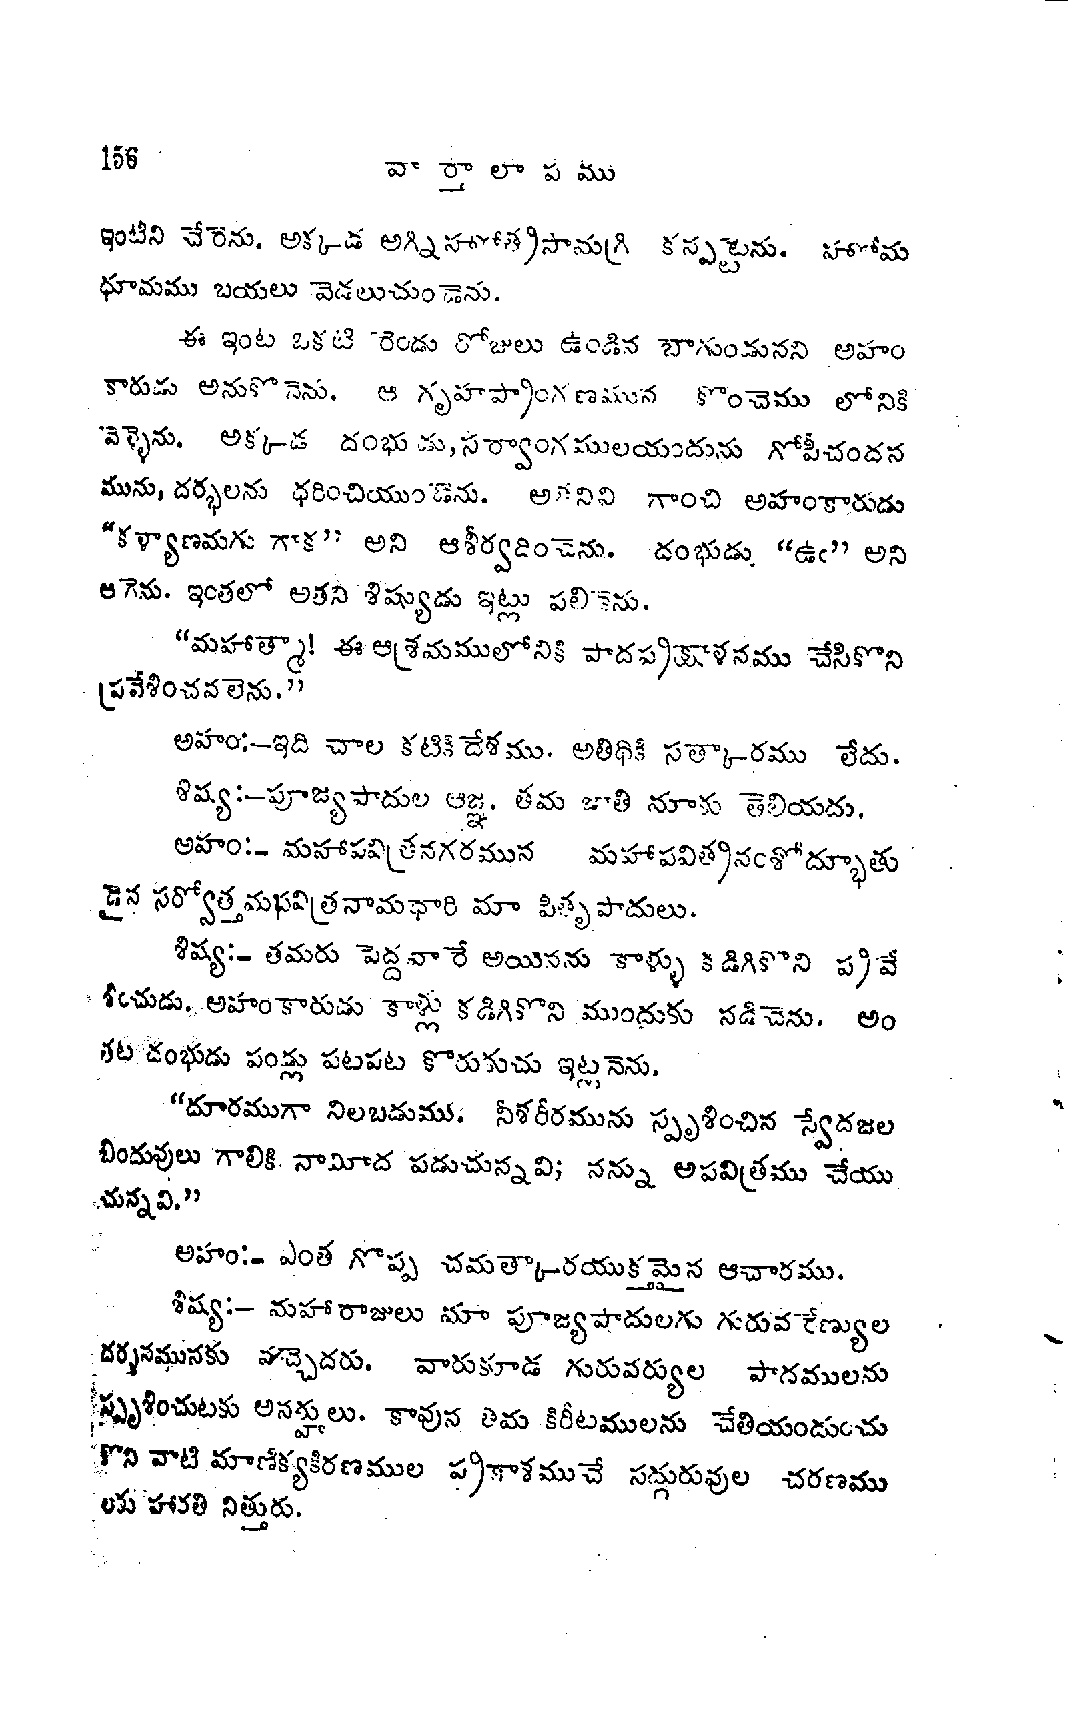 156
వా ర్తా లా ప ము
ఇంటిని చేరెను. అక్కడ అగ్నిహోత్రసామగ్రి కన్పట్టెను. హోమ
ధూమము బయలు వెడలుచుండెను.
ఈ ఇంట ఒకటి రెండు రోజులు ఉండిన బాగుండునని అహం
కారుడు అనుకొనెను. ఆ గృహప్రాంగణమున కొంచెము లోనికి
వెళ్ళెను. అక్కడ దంభుడు, సర్వాంగములయందును గోపీచందన
మును, దర్భలను ధరించియుండెను. అతనిని గాంచి అహంకారుడు
“కళ్యాణమగు గాక” అని ఆశీర్వదించెను. దంభుడు “ఉఁ” అని
ఆగెను. ఇంతలో అతని శిష్యుడు ఇట్లు పలికెను.
“మహాత్మా! ఈ ఆశ్రమములోనికి పాదప్రక్షాళనము చేసికొని
ప్రవేశించవలెను.”
అహం:—ఇది చాల కటికిదేశము. అతిథికి సత్కారము లేదు.
శిష్య:—పూజ్యపాదుల ఆజ్ఞ. తమ జాతి మాకు తెలియదు.
అహం:- మహాపవిత్రనగరమున మహాపవిత్రవంశోద్భూతు
డైన సర్వోత్తమపవిత్రనామధారి మా పితృపాదులు.
శిష్య:- తమరు పెద్దవారే అయినను కాళ్ళు కడిగికొని ప్రవే
శించుడు. అహంకారుడు కాళ్లు కడిగికొని ముందుకు నడిచెను. అం
తట దంభుడు పండ్లు పటపట కొరుకుచు ఇట్లనెను.
“దూరముగా నిలబడుము. నీశరీరమును స్పృశించిన స్వేదజల
బిందువులు గాలికి నామీద పడుచున్నవి; నన్ను అపవిత్రము చేయు
చున్నవి.”
అహం:- ఎంత గొప్ప చమత్కారయుక్తమైన ఆచారము.
శిష్య:— మహారాజులు మా పూజ్యపాదులగు గురువరేణ్యుల
దర్శనమునకు వచ్చెదరు. వారుకూడ గురువర్యుల పాదములను
స్పృశించుటకు అనర్హులు. కావున తమ కిరీటములను చేతియందుంచు
కొని వాటి మాణిక్యకిరణముల ప్రకాశముచే సద్గురువుల చరణము
లకు హారతి నిత్తురు.